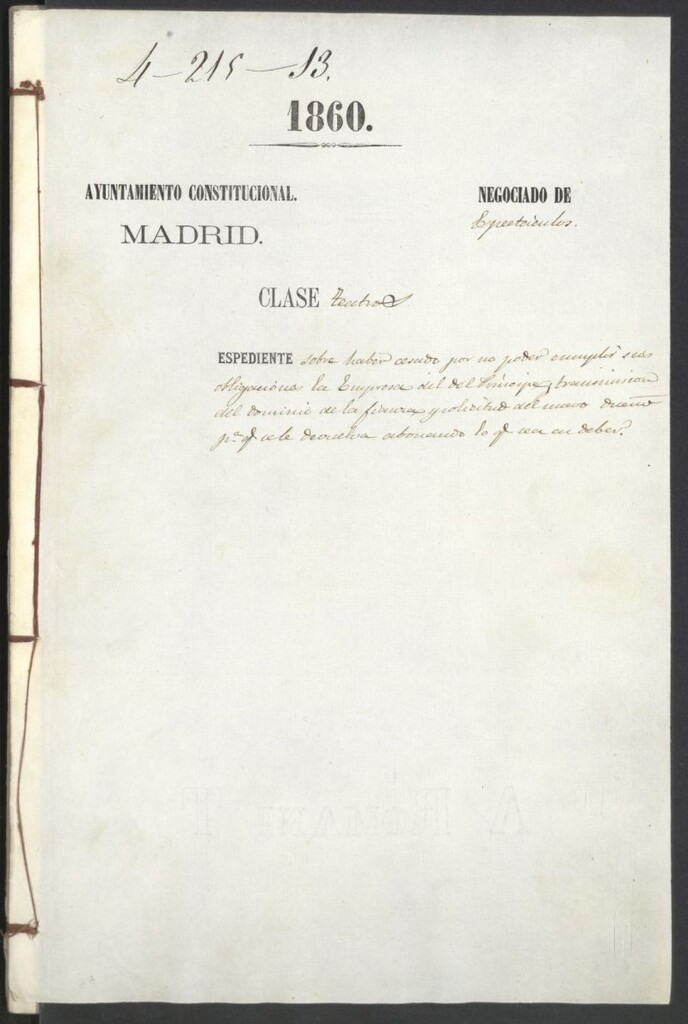 4-215-13.
1860.
AYUNTAMIENTO CONSTITUCIONAL.
MADRID.
NEGOCIADO DE
Espectáculos.
CLASE teatros
ESPEDIENTE sobre haber cesado por no poder cumplir sus
obligaciones la Empresa del del Principe, transmision
del dominio de la fianza y solicitud del nuevo dueño
pa. q se le devuelva abonando lo q sea en deber.